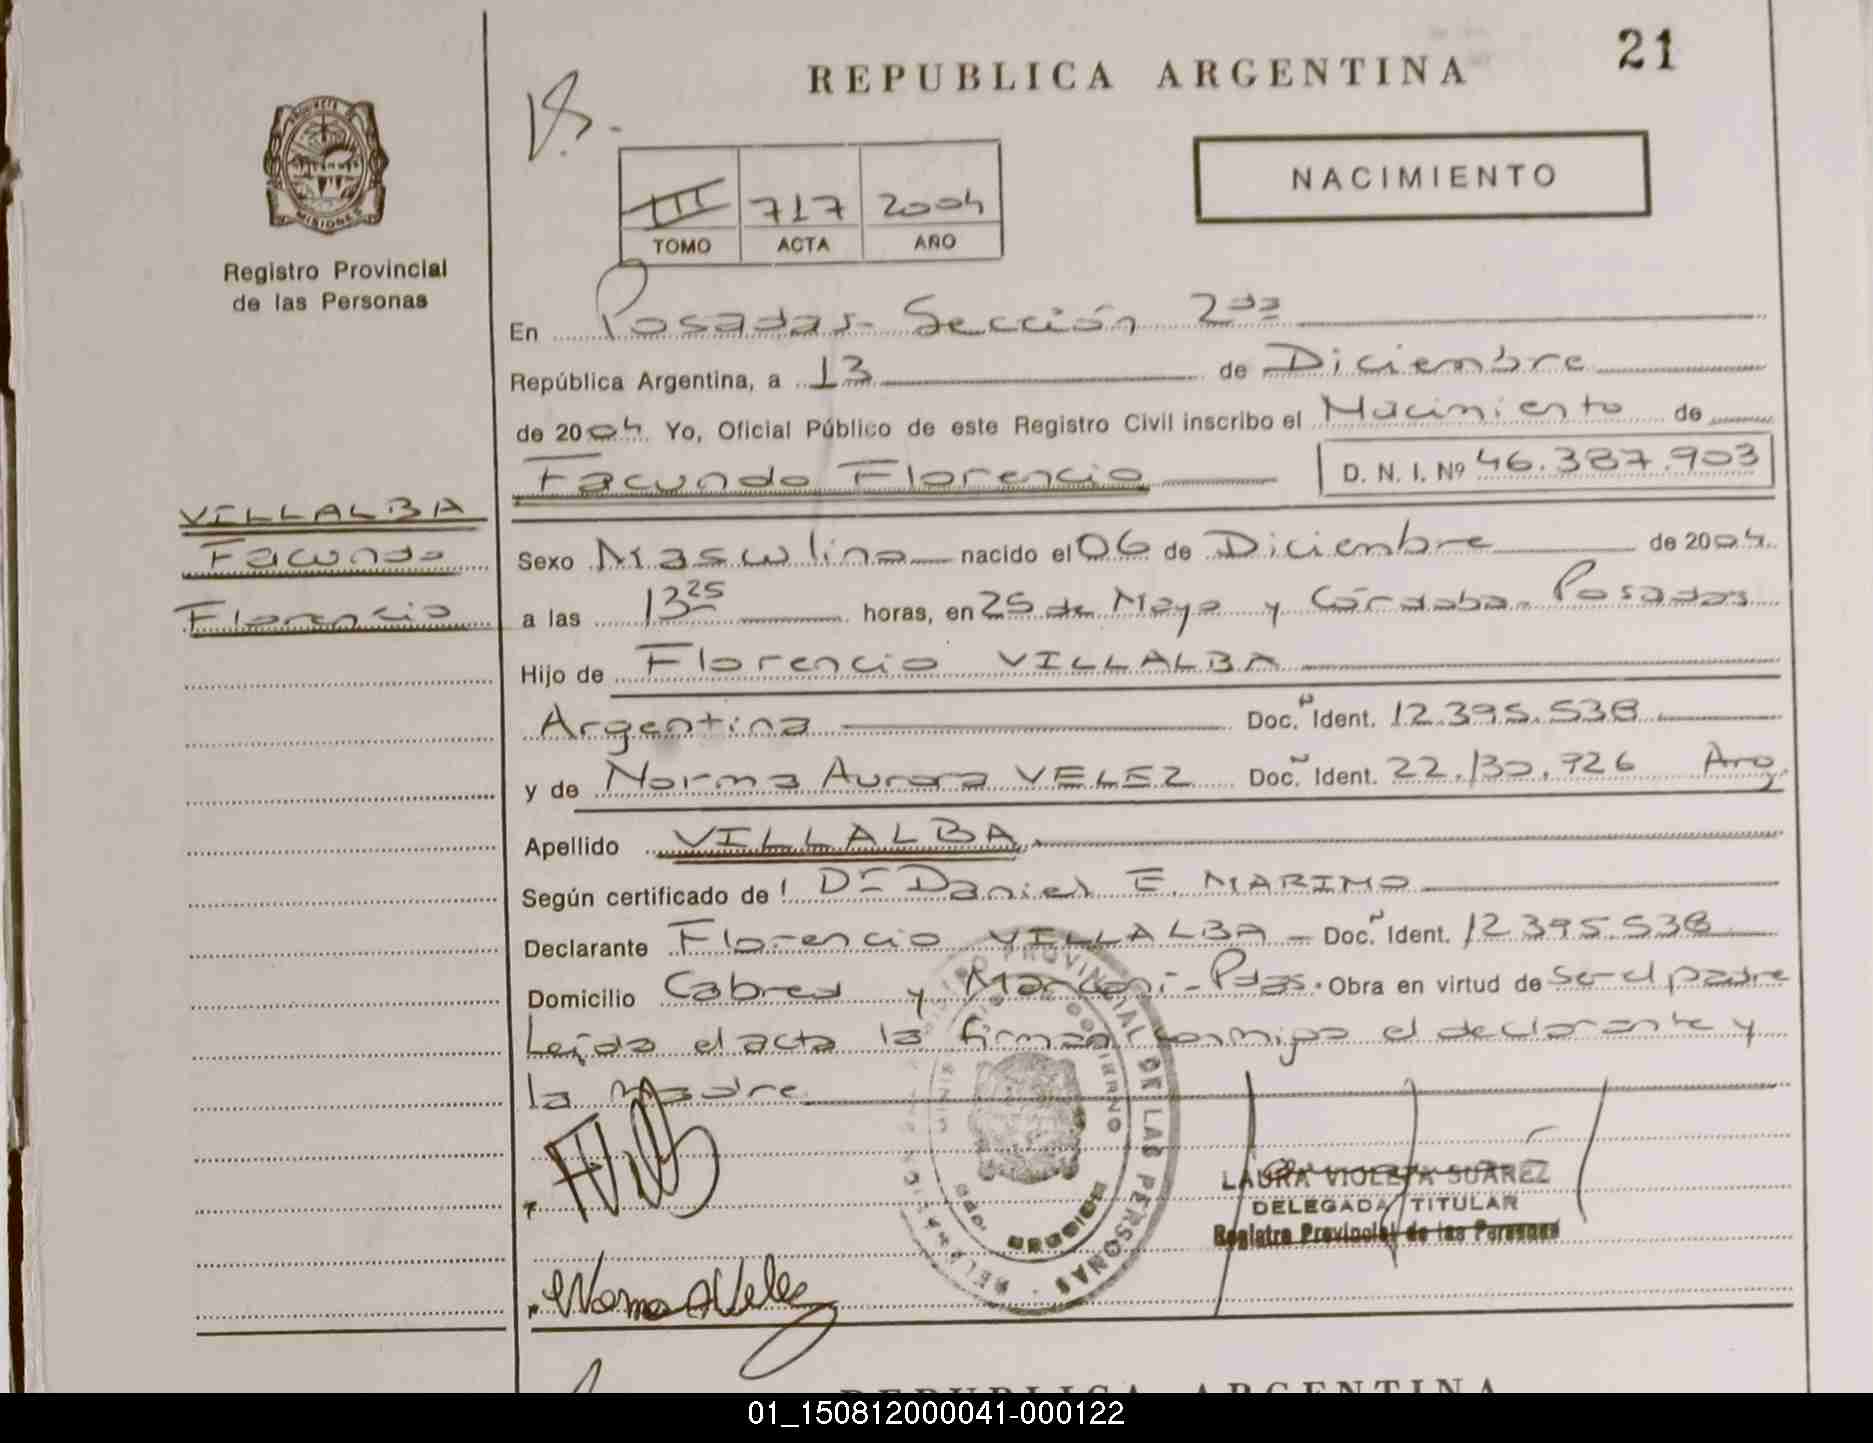 REPUBLICA ARGENTINA
21
NACIMIENTO
III 717 2004
TOMO ACTA AÑO
PROVINCIA DE MISIONES
Registro Provincial
de las Personas
En Posadas- Sección 2da
República Argentina, a 13 de Diciembre
de 2004 Yo, Oficial Público de este Registro Civil inscribo el Nacimiento de
Facundo Florencio D. N. I. Nº 46.387.903
VILLALBA
Facundo
Florencio
Sexo Masculino nacido el 06 de Diciembre de 2004.
a las 13 25 horas, en 25 de Mayo y Córdoba- Posadas
Hijo de Florencio VILLALBA
Argentina Doc. Ident. 12.395.538
y de Norma Aurora VELEZ Doc. Ident. 22.130.726 Arg.
Apellido VILLALBA
Según certificado de Dr Daniel E. MARINO
Declarante Florencio VILLALBA - Doc. Ident. 12.395.538
Domicilio Cabred y Marconi- Pdas. Obra en virtud de ser el padre
Leída el acta la firman conmigo el declarante y
la madre
REGISTRO PROVINCIAL DE LAS PERSONAS
LAURA VIOLETA SUAREZ
DELEGADA TITULAR
Registro Provincial de las Personas
Norma A Velez
REPUBLICA ARGENTINA
01_150812000041-000122